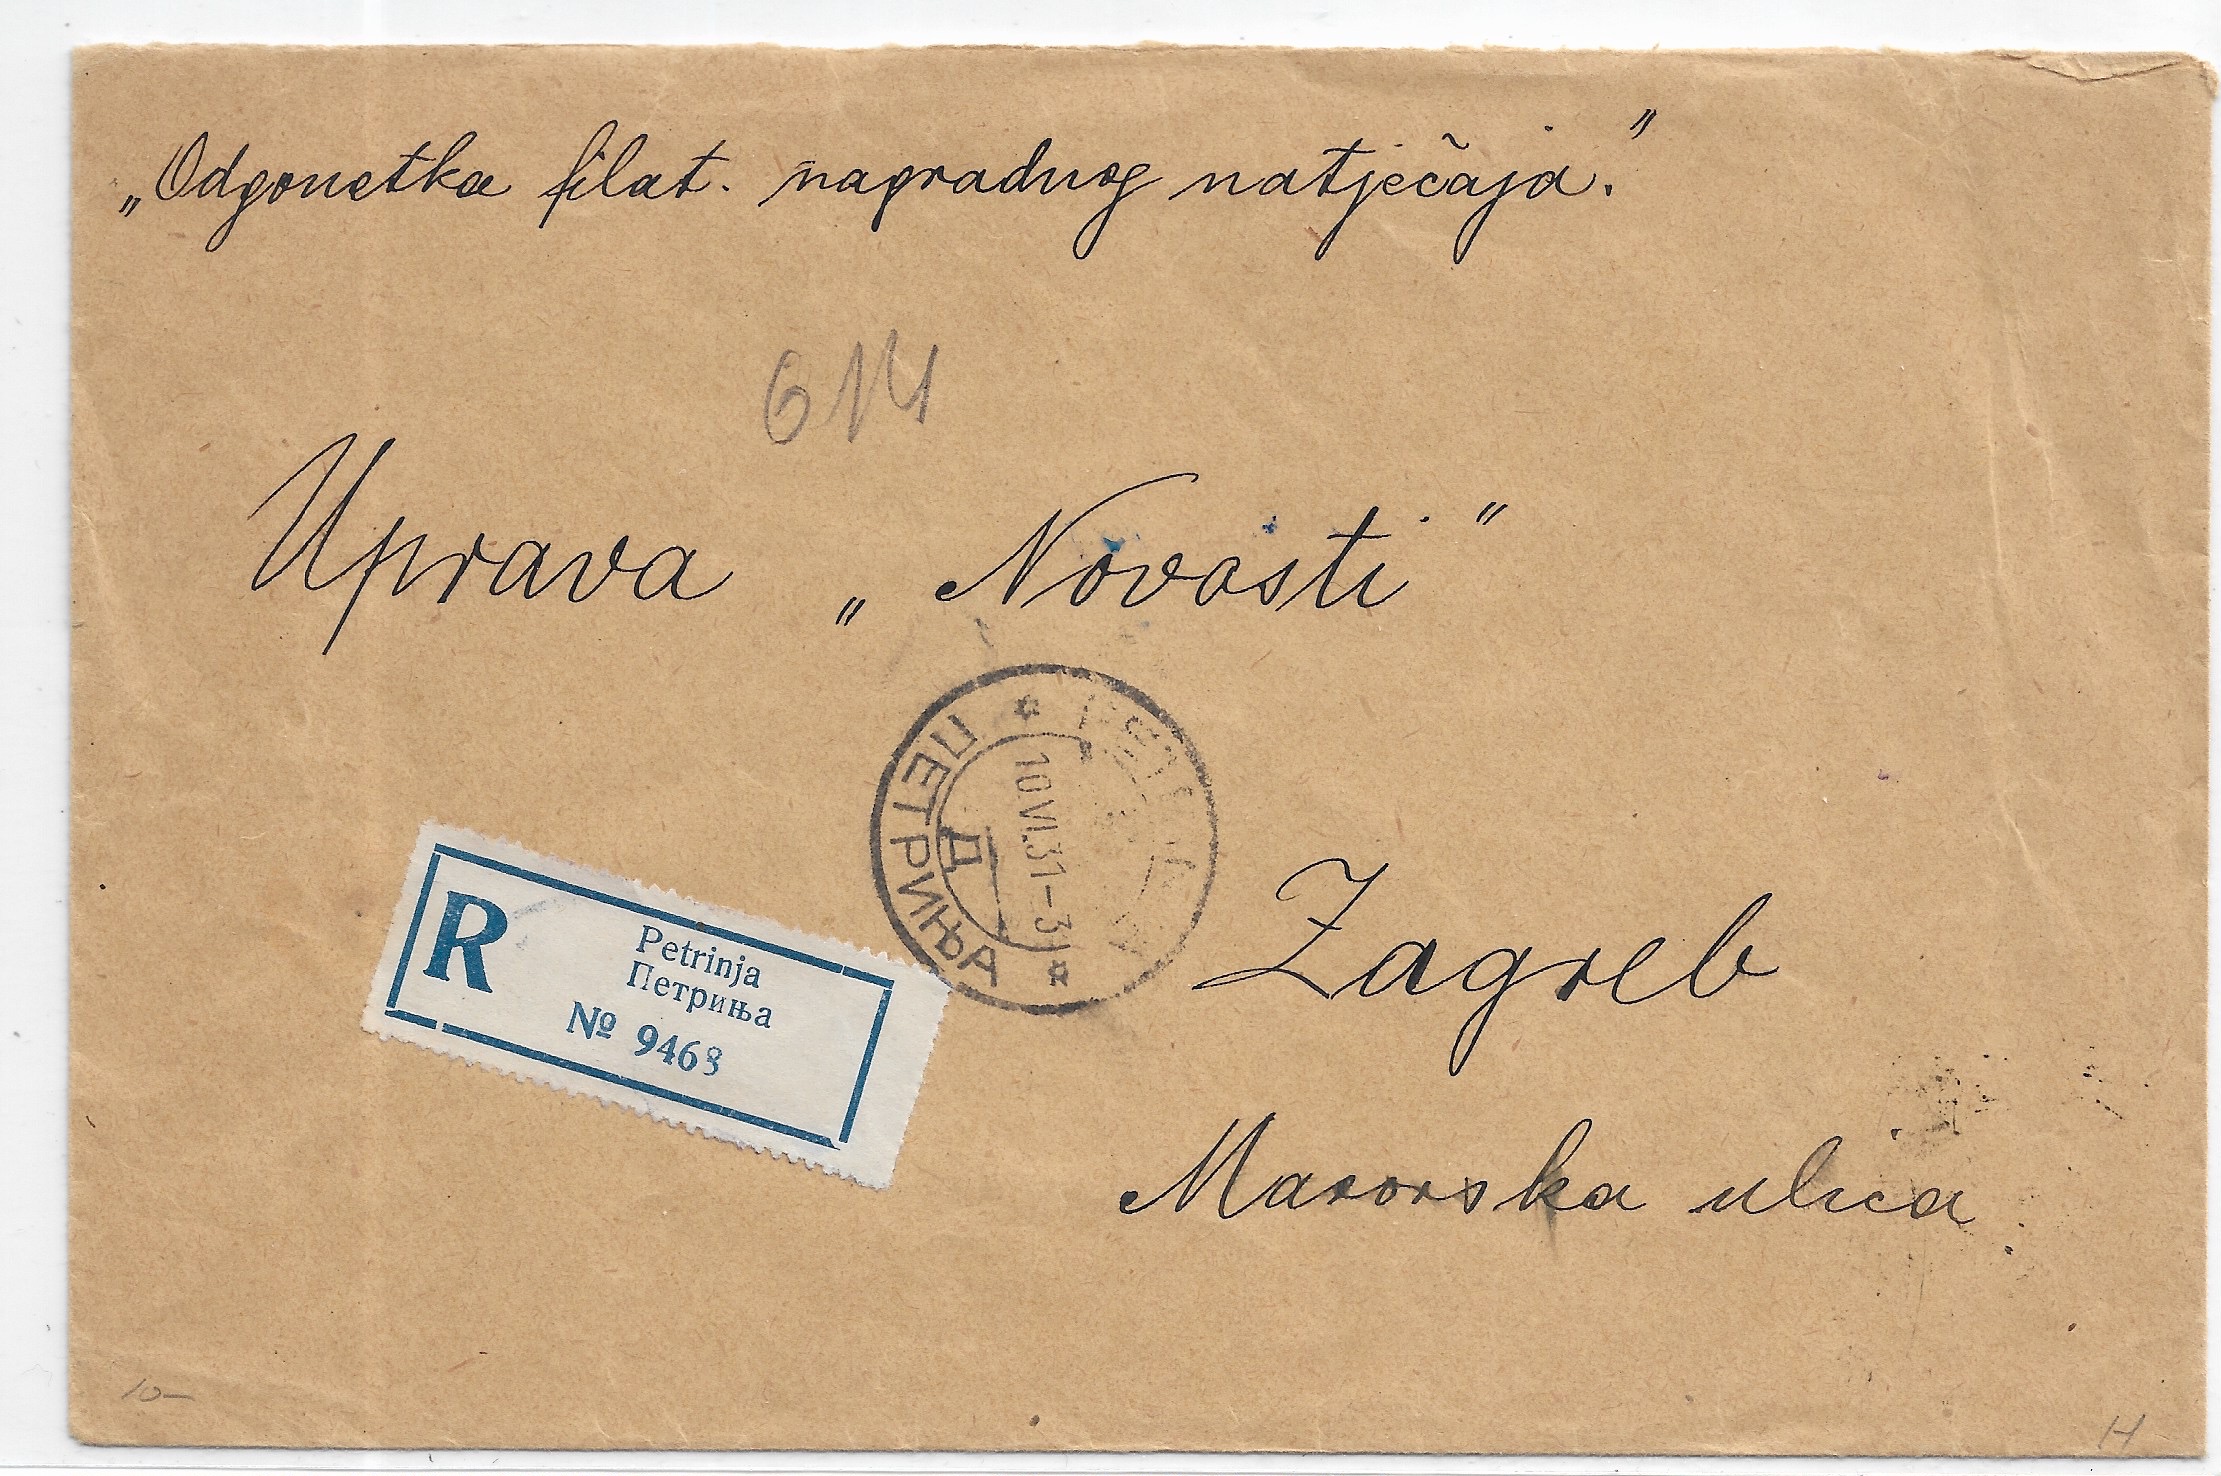 „Odgonetka filat. nagradnog natječaja."
614
Uprava „Novosti"
ПЕТРИЊА
10.VI.31-3
Д
R
Petrinja
Петриња
№ 9468
Zagreb
Masarska ulica
10-
H